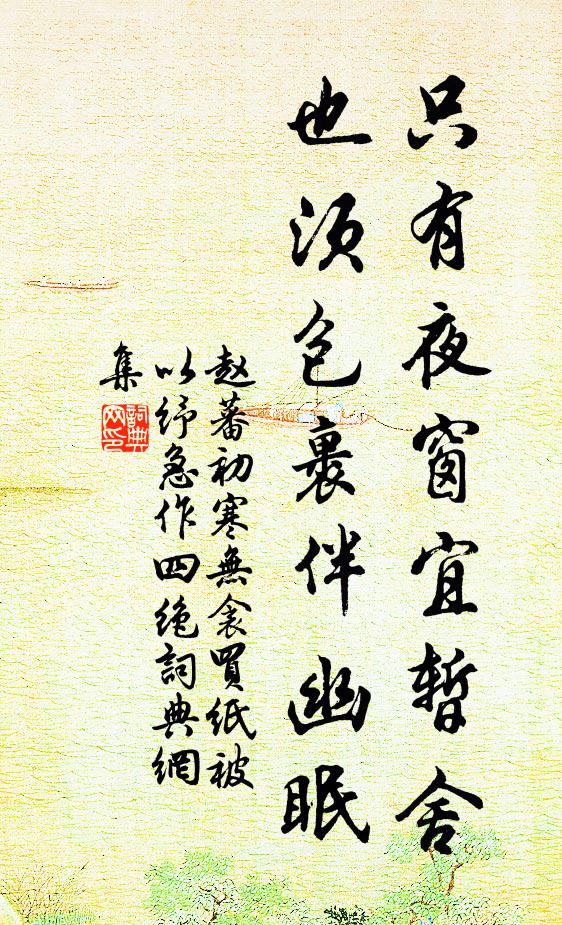 只有夜窗宜暫舍
也須包裹伴幽眠
赵蕃初寒無衾買紙被
以紓急作四绝詞典網
集
詞典
网印